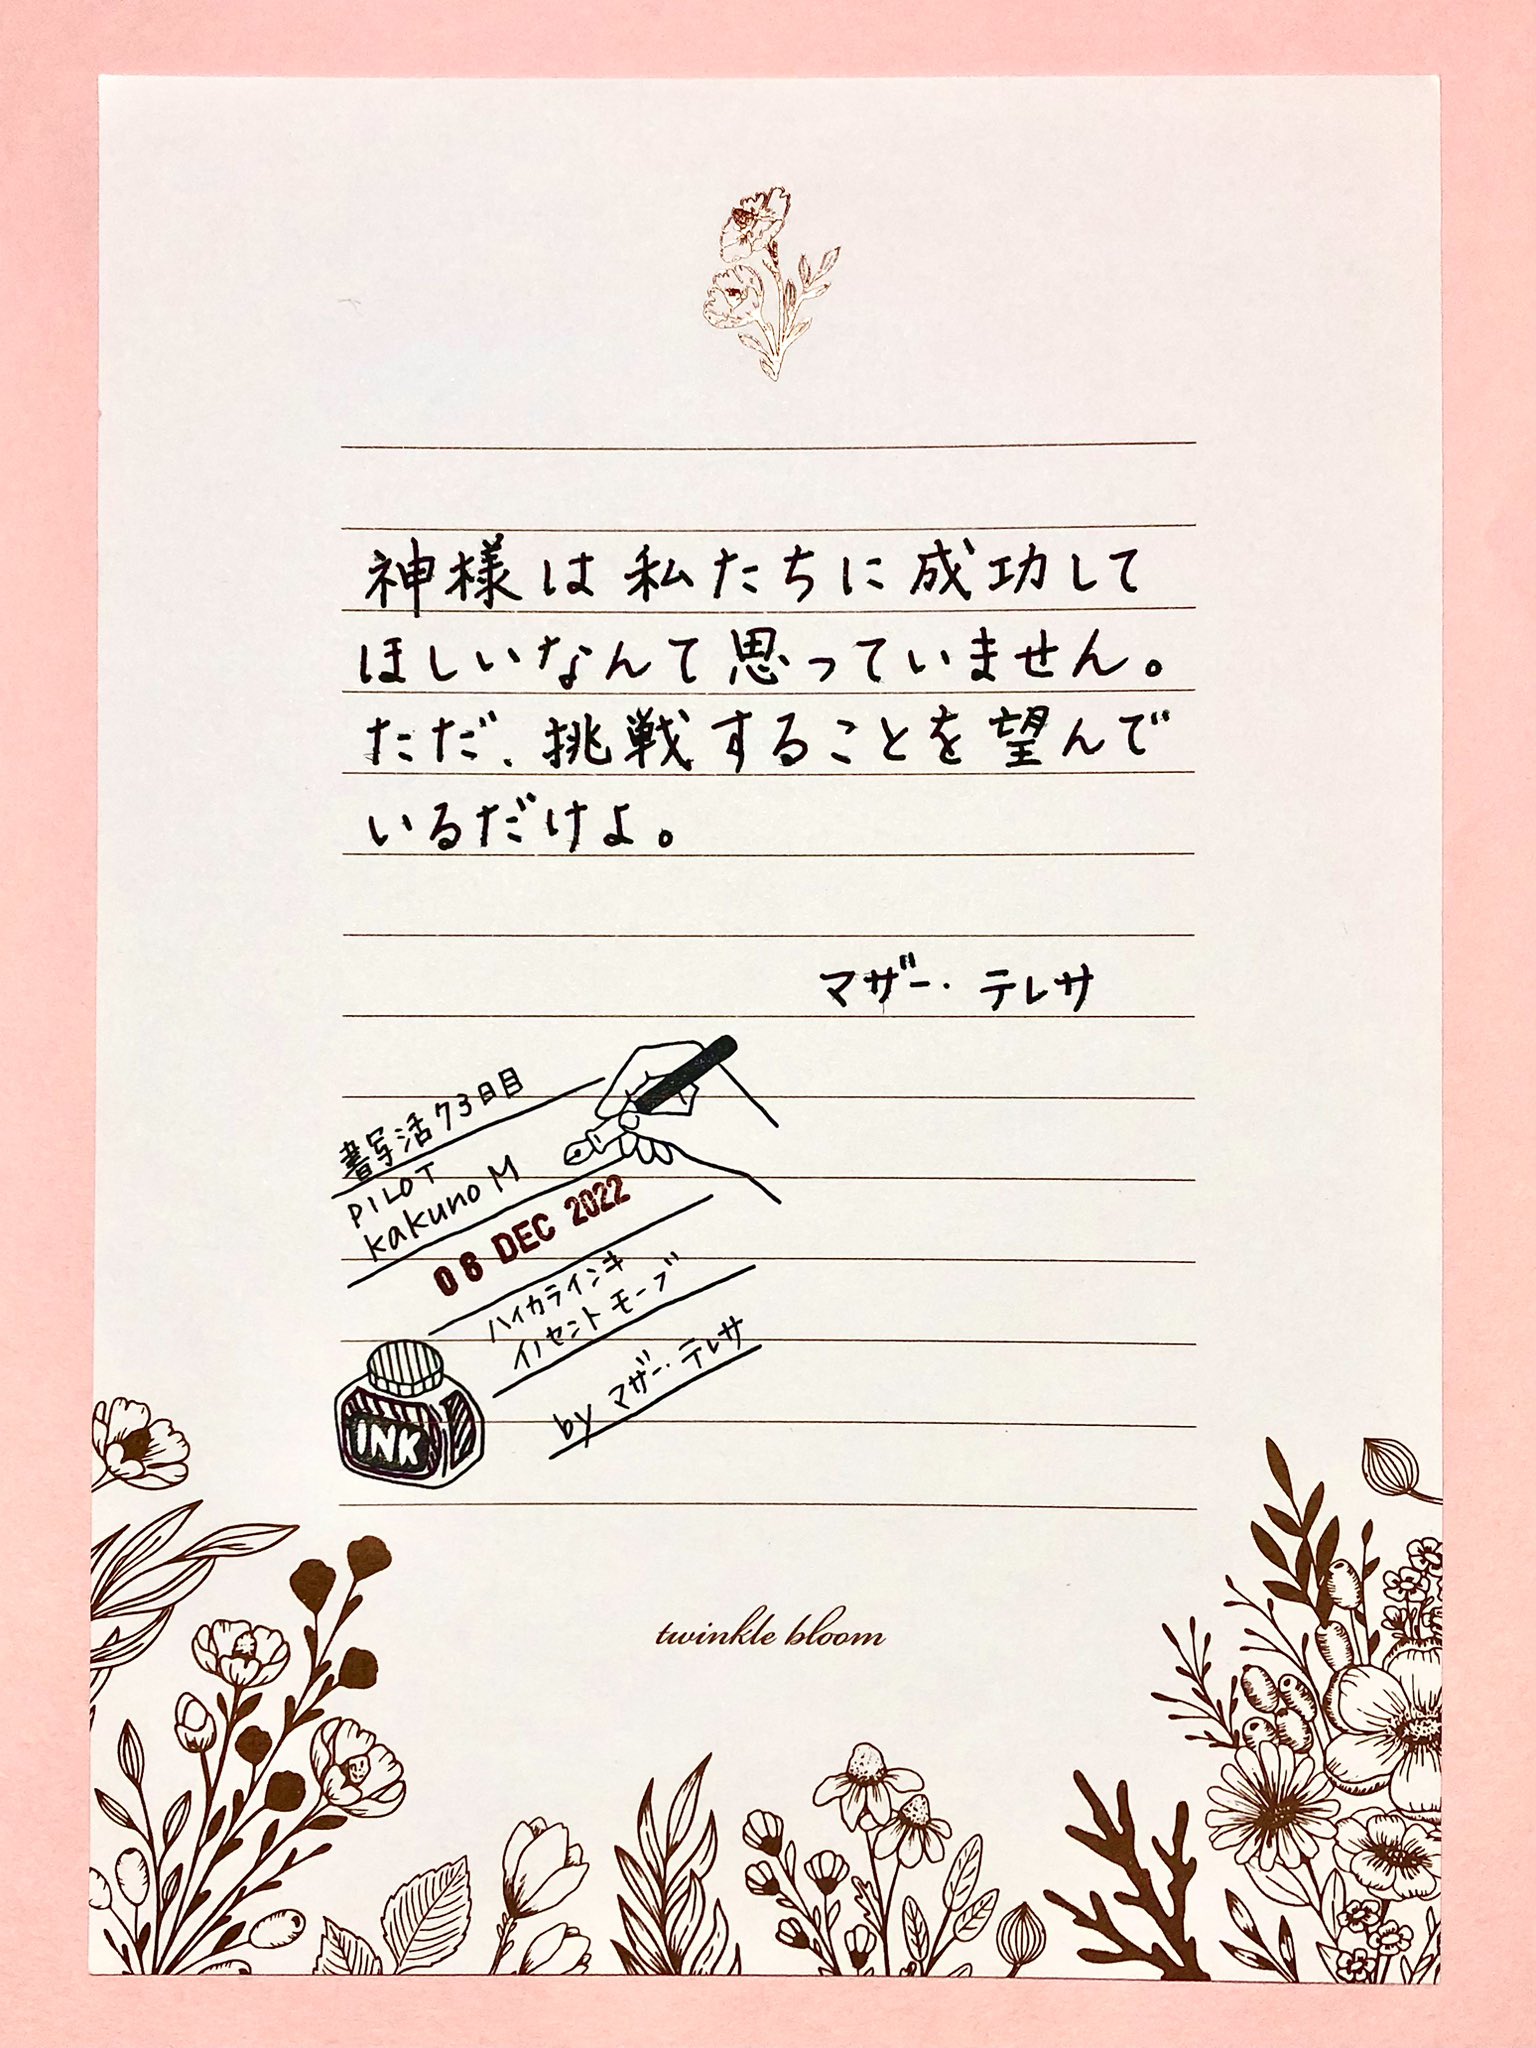 神様は私たちに成功して
ほしいなんて思っていません。
ただ、挑戦することを望んで
いるだけよ。
マザー・テレサ
書写活73日目
PILOT
kakuno M
06 DEC 2022
ハイカラインキ
イノセントモーブ
by マザー・テレサ
INK
twinkle bloom